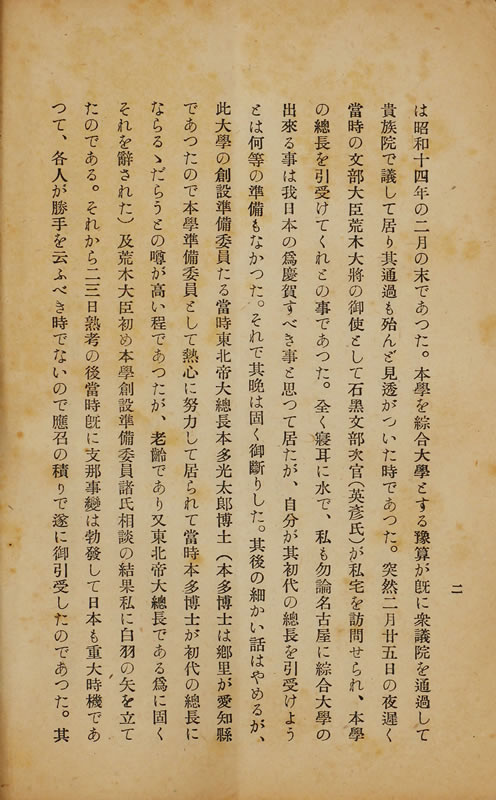 は昭和十四年の二月の末であつた。本學を綜合大學とする豫算が旣に衆議院を通過して
貴族院で議して居り其通過も殆んど見透がついた時であつた。突然二月廿五日の夜遲く
當時の文部大臣荒木大將の御使として石黑文部次官(英彥氏)が私宅を訪問せられ、本學
の總長を引受けてくれとの事であつた。全く寢耳に水で、私も勿論名古屋に綜合大學の
出來る事は我日本の爲慶賀すべき事と思つて居たが、自分が其初代の總長を引受けよう
とは何等の準備もなかつた。それで其晚は固く御斷りした。其後の細かい話はやめるが、
此大學の創設準備委員たる當時東北帝大總長本多光太郞博士(本多博士は鄕里が愛知縣
であつたので本學準備委員として熱心に努力して居られて當時本多博士が初代の總長に
ならるゝだらうとの噂が高い程であつたが、老齡であり又東北帝大總長である爲に固く
それを辭された)及荒木大臣初め本學創設準備委員諸氏相談の結果私に白羽の矢を立て
たのである。それから二三日熟考の後當時旣に支那事變は勃發して日本も重大時機であ
つて、各人が勝手を云ふべき時でないので應召の積りで遂に御引受したのであつた。其
二